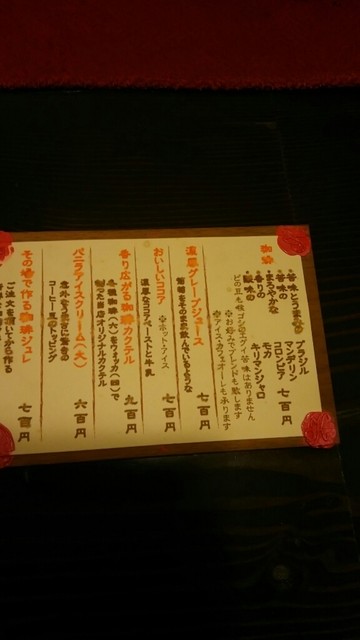 珈琲
・苦味とうま味の ブラジル
・苦味の マンデリン
・まろやかな コロンビア 七百円
・香りの モカ
・酸味の キリマンジャロ
どの豆も雑ゴシのエグイ苦味はありません
※お好みでブレンドも致します
※アイス・カフェオーレも承ります
濃厚グレープジュース
葡萄をそのまま飲んでいるような
七百円
おいしいココア ※ホット・アイス
濃厚なココアペーストと牛乳
七百円
香り広がる珈琲カクテル
各種珈琲(六)をウォッカ(四)で
割った当店オリジナルカクテル
九百円
バニラアイスクリーム(大)
意外なうま旨に驚きの
コーヒー豆のトッピング
六百円
その場で作る珈琲ジュレ
ご注文を頂いてから作る
七百円